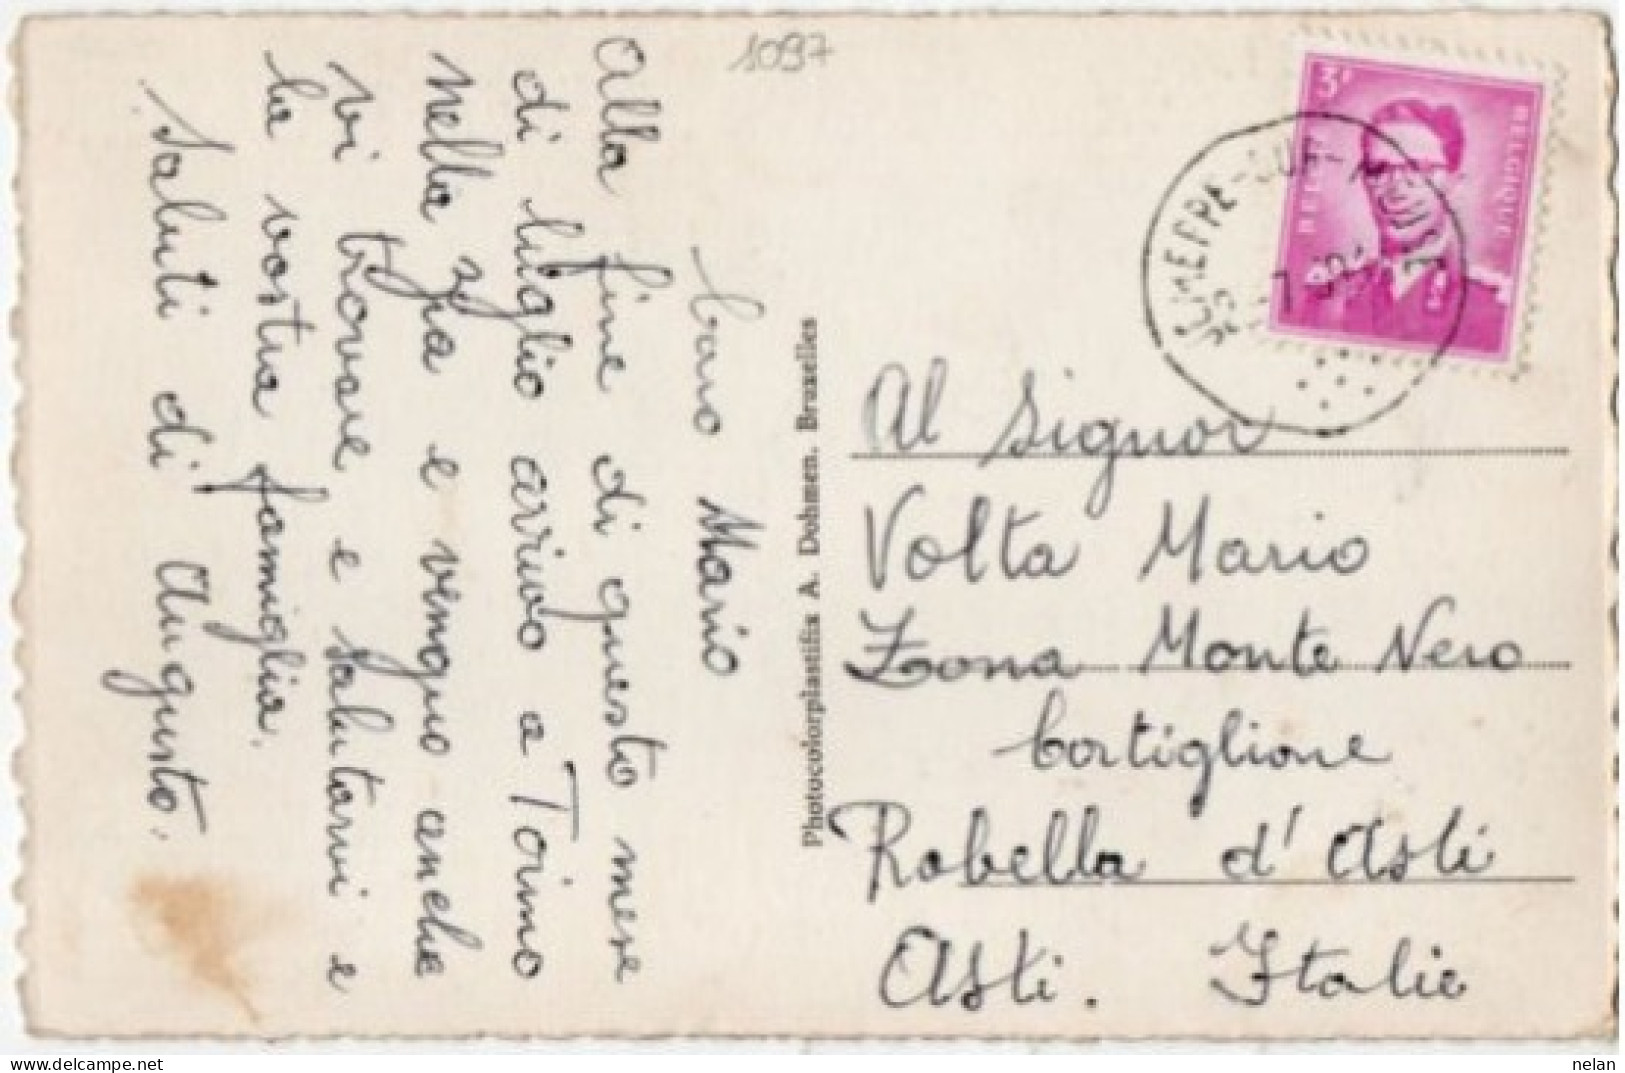 1097
caro Mario
alla fine di questo mese
di luglio arrivo a Torino
nella zia e vengo anche
vi trovare e salutarvi e
la vostra famiglia.
Saluti di Augusto.
Photocolorplastifix A. Dohmen. Bruxelles
3F
BELGIQUE
JEMEPPE-SUR-MEUSE
Al Signor
Volta Mario
Zona Monte Nero
Cortiglione
Robella d'Asti
Asti. Italie
nelan